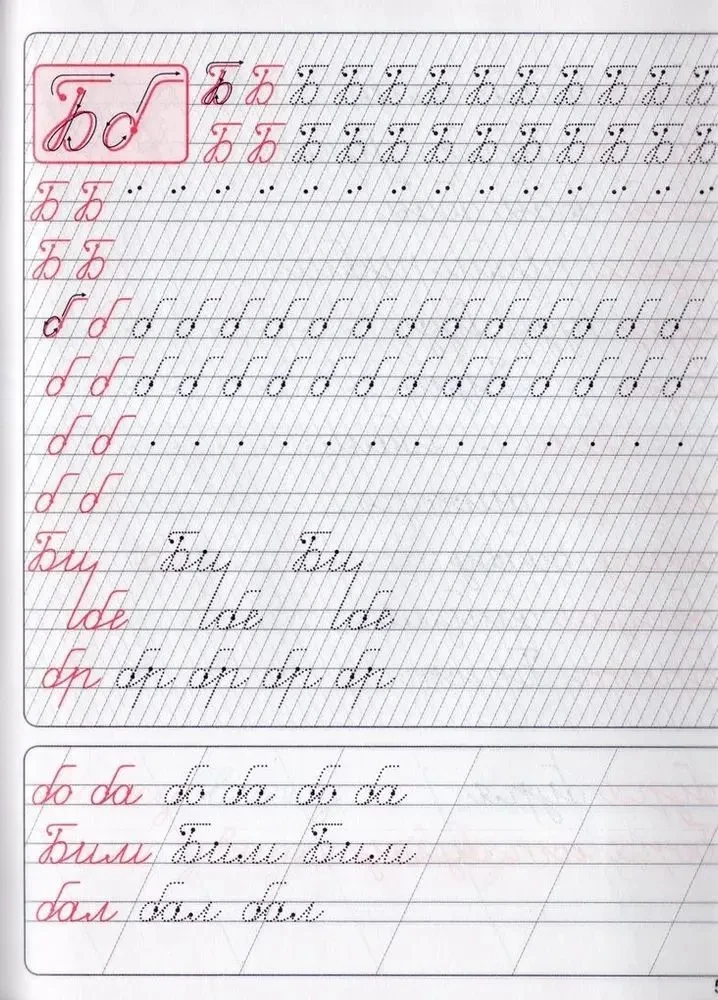 Б б
Б Б Б Б Б Б Б Б Б Б Б Б
Б Б Б Б Б Б Б Б Б Б Б Б
Б Б
Б Б
б б б б б б б б б б б б б б б
б б б б б б б б б б б б б б б
б б
б б
Бу Бу Бу
бе бе бе
бр бр бр бр бр
бо ба бо ба бо ба
Бим Бим Бим
бал бал бал